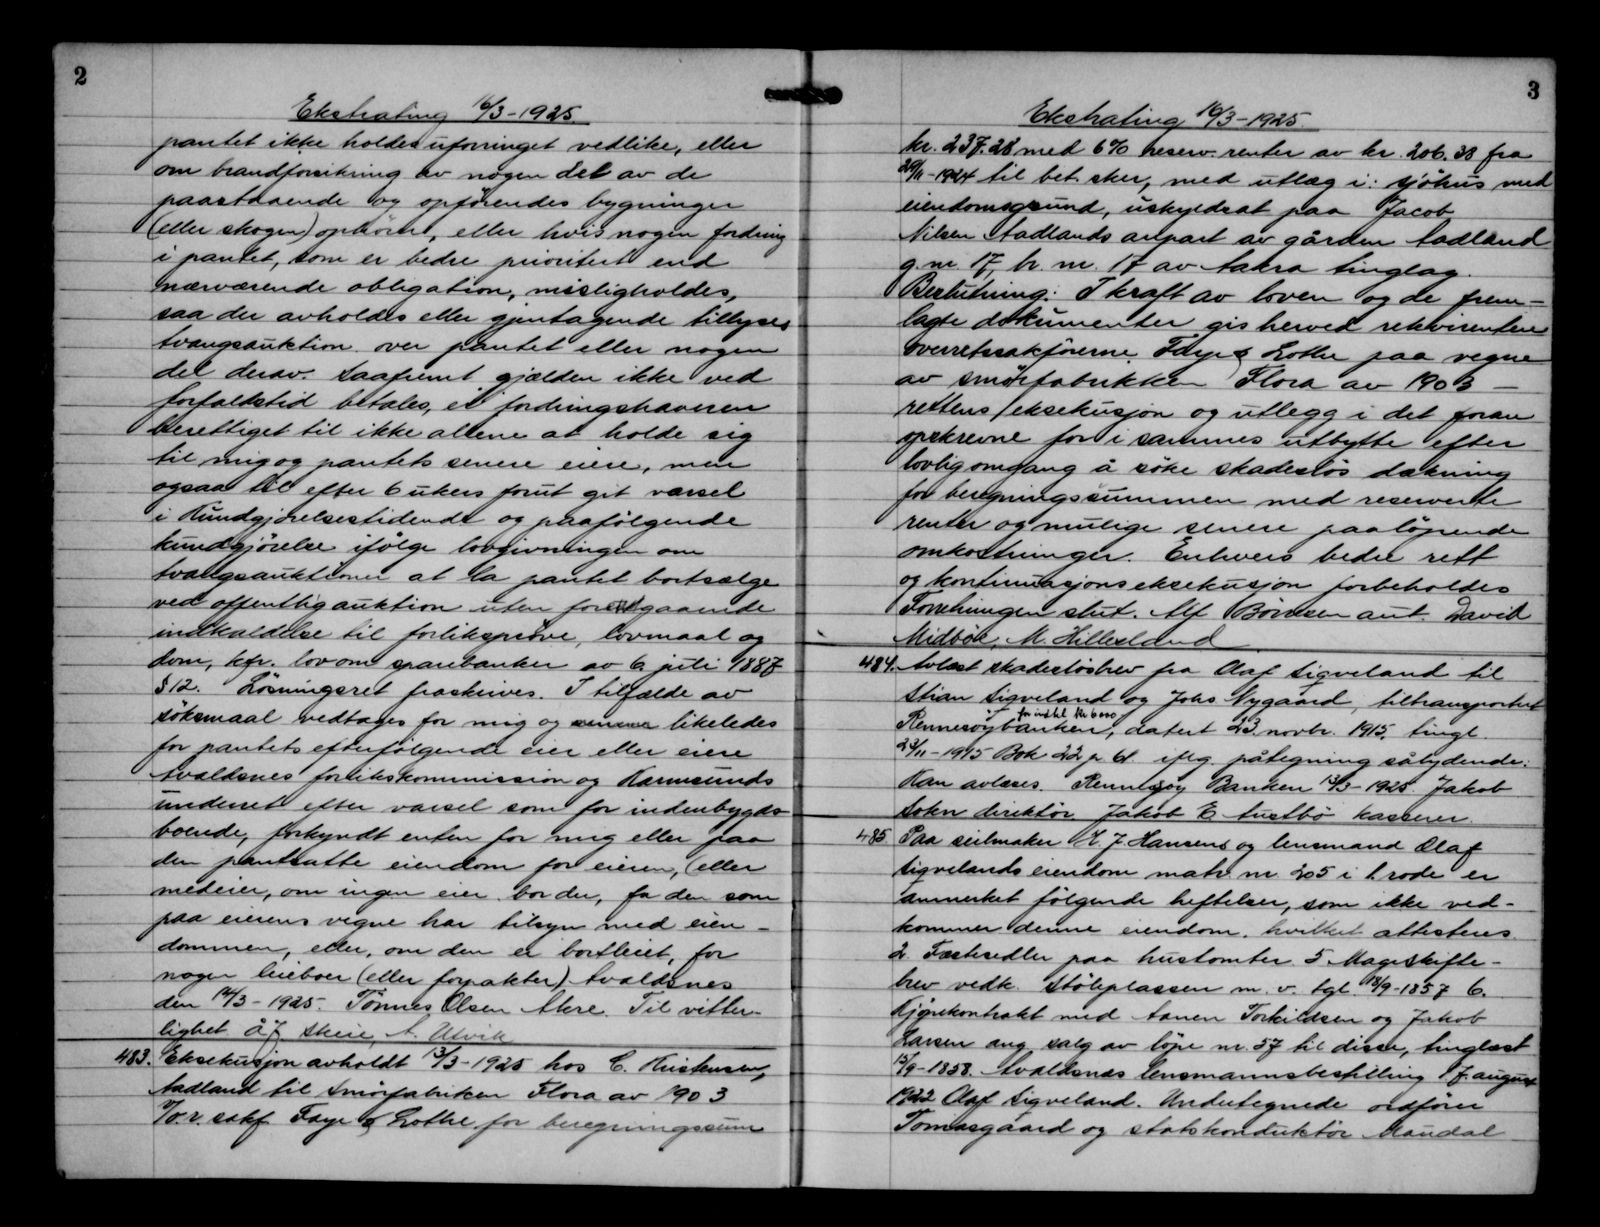 2
Ekstrating 16/3-1925.
pantet ikke holdes uforringet vedlike, eller
om brandforsikring av nogen del av de
paastaaende og opførendes bygninger
(eller skogen) ophører, eller hvis nogen fordring
i pantet, som er bedre prioritert end
nærværende obligation, misligholdes,
saa der avholdes eller gjentagende tillyses
tvangsauktion over pantet eller nogen
del derav. Saafremt gjælden ikke ved
forfaldstid betales, er fordringshaveren
berettiget til ikke allene at holde sig
til mig og pantets senere eiere, men
ogsaa til efter 6 ukers forut git varsel
i Kundgjørelsestidende og paafølgende
kundgjørelse ifølge lovgivningen om
tvangsauktioner at la pantet bortsælge
ved offentlig auktion uten forutgaaende
indkaldelse til forliksprøve, lovmaal og
dom, kfr. lov om sparebanker av 6 juli 1887
§ 12. Løsningsret fraskrives. I tilfælde av
søksmaal vedtages for mig og likeledes
for pantets efterfølgende eier eller eiere
Avaldsnes forlikskommission og Karmsunds
underret efter varsel som for indenbygds-
boende, forkyndt enten for mig eller paa
den pantsatte eiendom for eieren, (eller
medeier, om ingen eier bor der, fa den som
paa eierens vegne har tilsyn med eien-
dommen, eller, om den er bortleiet, for
nogen leieboer (eller forpakter) Avaldsnes
den 14/3-1925. Tønnes Olsen Akre. Til vitter-
lighet Å J. Skeie, A. Utvik
483. Eksekusjon avholdt 13/3-1925 hos C. Kristensen,
Aadland til Smørfabriken Flora av 1903
v/o.r.sakf. Faye & Lothe for beregningssum
3
Ekstrating 16/3-1925.
kr. 237.28 med 6% reserv. renter av kr. 206.38 fra
29/11-1924 til bet. sker, med utlæg i: sjøhus med
eiendomsgrund, uskyldsat paa Jacob
Nilsen Aadlands anpart av gården Aadland
g.nr. 17, br. nr. 17 av Aakra tinglag.
Beslutning: I kraft av loven og de frem-
lagte dokumenter gis herved rekvirentene
overretssakførerne Faye & Lothe paa vegne
av smørfabrikken Flora av 1903 –
rettens eksekusjon og utlegg i det foran
opskrevne for i sammes utbytte efter
lovlig omgang å søke skadesløs dækning
for beregningssummen med reserverte
renter og mulige senere paaløpende
omkostninger. Enhvers bedre rett
og kontinuasjonseksekusjon forbeholdes
Forretningen slut. Alf Børresen aut. David
Midbøe, M. Hillesland
484. Avlæst skadesløsbrev fra Olaf Sigveland til
Stian Sigveland og Johs Nygaard, tiltransportert
for indtil kr 6000
Rennesøybanken, datert 23 novbr. 1915, tingl.
23/11-1915 Bok 22 p. 61. iflg. påtegning sålydende:
Kan avlæses. Rennesøy Banken 13/3-1925. Jakob
Sokn direktør Jakob E Austbø kasserer.
485. Paa seilmaker H. J. Hansens og lensmand Olaf
Sigvelands eiendom matr. nr 205 i 1 rode er
anmerket følgende heftelser, som ikke ved-
kommer denne eiendom, hvilket attesteres
2. Festesedler paa hustomter 5. Mageskifte-
brev vedk. Støleplassen m.v. tgl. 18/9-1857 6.
Kjøpekontrakt med Aanen Torkildsen og Jakob
Larsen ang. salg av løpe nr. 57 til disse, tinglæst
15/9-1858. Avaldsnes lensmannsbestilling 17. august
1922 Olaf Sigveland. Undertegnede ordfører
Tomasgaard og statskonduktør Maudal